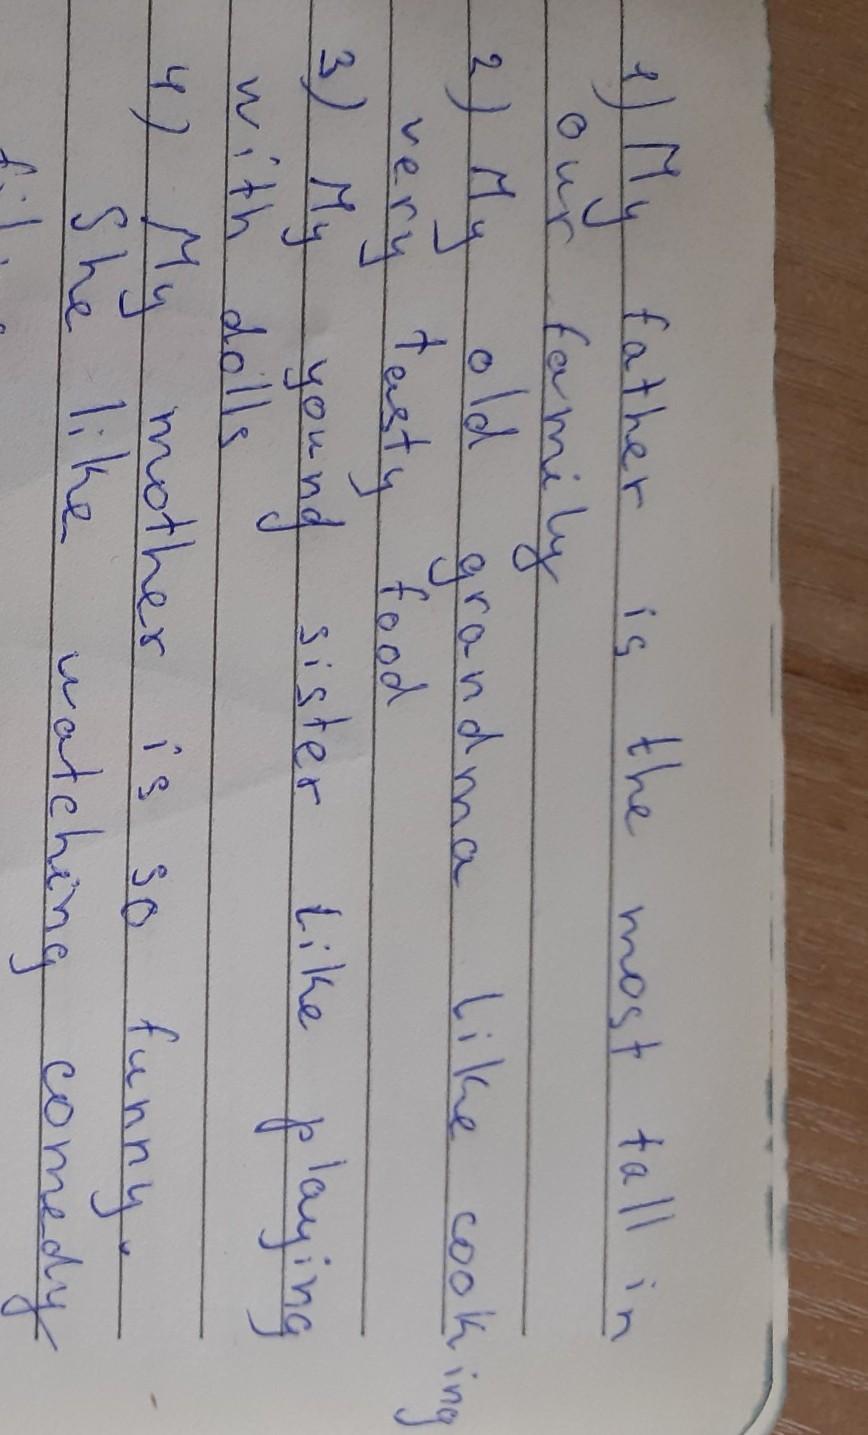 1) My father is the most tall in
our family
2) My old grandma like cooking
very tasty food
3) My yound sister like playing
with dolls
4) My mother is so funny.
She like watching comedy